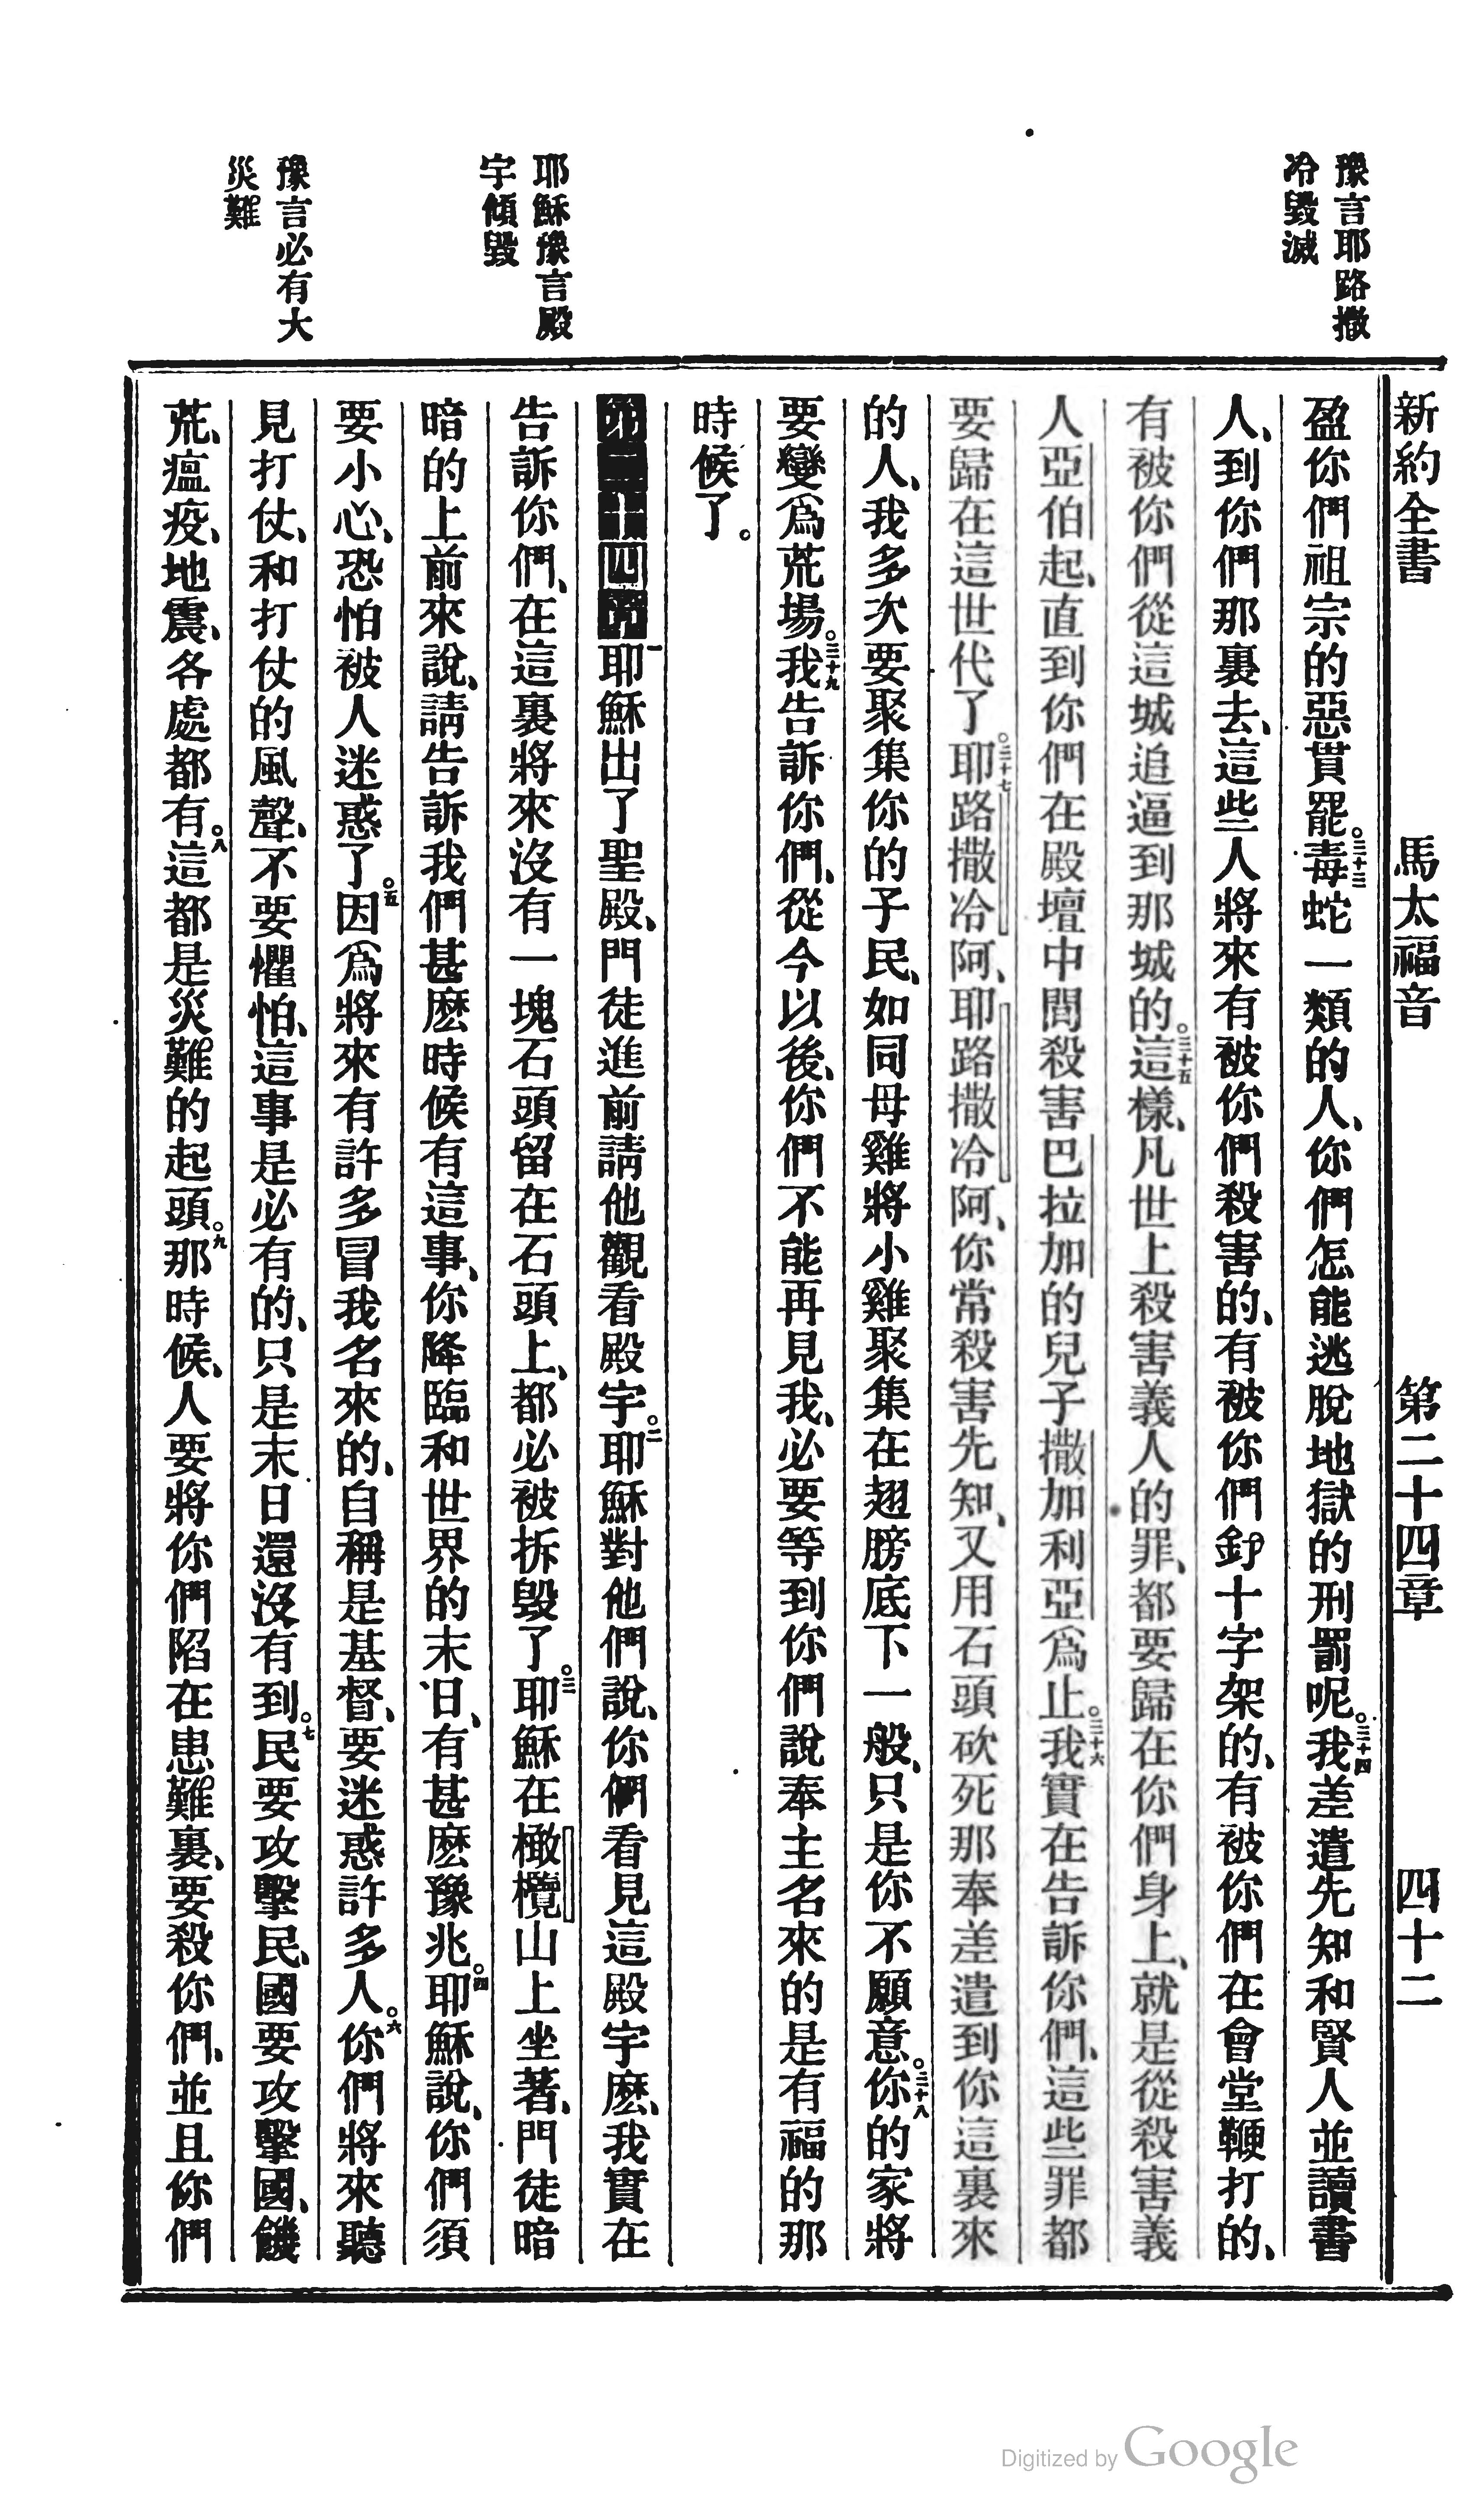 新約全書　馬太福音　第二十四章　四十二
豫言耶路撒
冷毀滅
盈你們祖宗的惡貫罷。三十三毒蛇一類的人、你們怎能逃脫地獄的刑罰呢。三十四我差遣先知和賢人並讀書
人、到你們那裏去、這些人將來有被你們殺害的、有被你們釘十字架的、有被你們在會堂鞭打的、
有被你們從這城追逼到那城的。三十五這樣、凡世上殺害義人的罪、都要歸在你們身上、就是從殺害義
人亞伯起、直到你們在殿壇中間殺害巴拉加的兒子撒加利亞爲止。三十六我實在告訴你們、這些罪都
要歸在這世代了。三十七耶路撒冷阿、耶路撒冷阿、你常殺害先知、又用石頭砍死那奉差遣到你這裏來
的人、我多次要聚集你的子民、如同母雞將小雞聚集在翅膀底下一般、只是你不願意。三十八你的家將
要變爲荒場。三十九我告訴你們、從今以後、你們不能再見我、必要等到你們說奉主名來的是有福的那
時候了。
耶穌豫言殿
宇傾毀
第二十四章一耶穌出了聖殿、門徒進前請他觀看殿宇。二耶穌對他們說、你們看見這殿宇麽、我實在
告訴你們、在這裏將來沒有一塊石頭留在石頭上、都必被拆毀了。三耶穌在橄欖山上坐著、門徒暗
暗的上前來說、請告訴我們甚麽時候有這事、你降臨和世界的末日、有甚麽豫兆。四耶穌說、你們須
要小心、恐怕被人迷惑了。五因爲將來有許多冒我名來的、自稱是基督、要迷惑許多人。六你們將來聽
豫言必有大
災難
見打仗、和打仗的風聲、不要懼怕、這事是必有的、只是末日還沒有到。七民要攻擊民、國要攻擊國、饑
荒、瘟疫、地震、各處都有。八這都是災難的起頭。九那時候、人要將你們陷在患難裏、要殺你們、並且你們
Digitized by Google